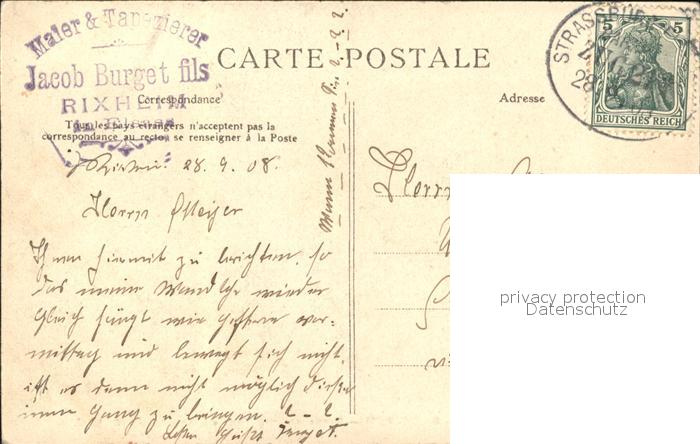 Maler & Tapezierer
Jacob Burget fils
RIXHEIM
i. Elsass
CARTE POSTALE
STRASSBURG
28
5 5
DEUTSCHES REICH
Correspondance
Adresse
Tous les pays étrangers n'acceptent pas la
correspondance au recto, se renseigner à la Poste
Rixheim 28. 9. 08.
Herrn
Ihnen hiermit zu berichten, so
das meine Wanduhr wieder
gleich hängt wie gestern vor-
mittag und bewegt sich nicht,
ist es denn nicht möglich diese
in Gang zu bringen.
Burget.
Wann kommen Sie
Herrn
privacy protection
Datenschutz